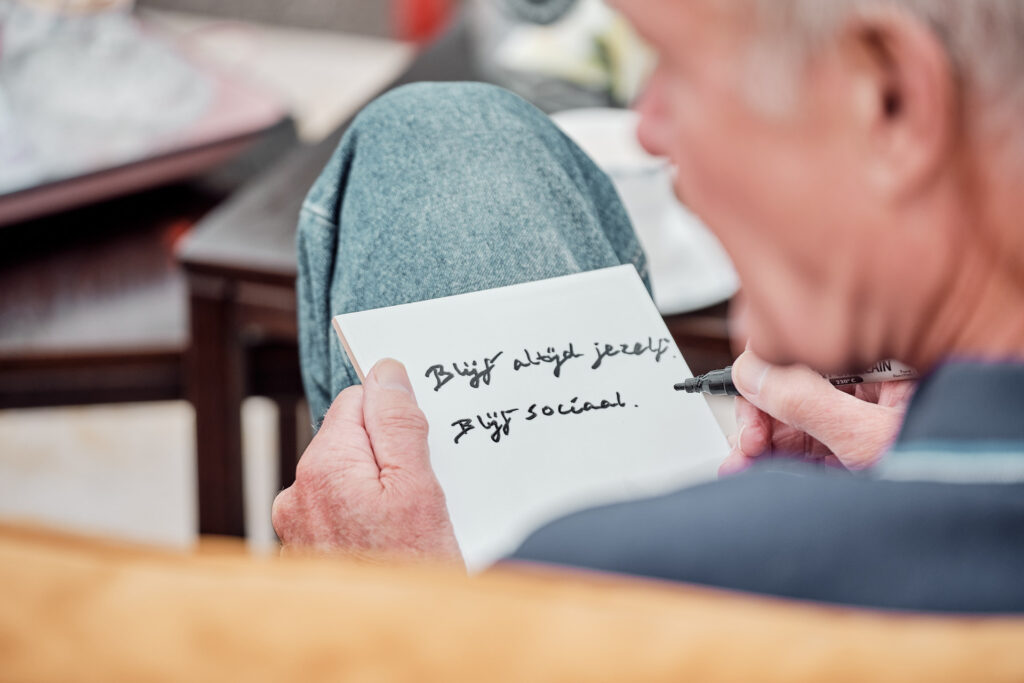 Blijf altijd jezelf.
Blijf sociaal.
LAIN
220°C